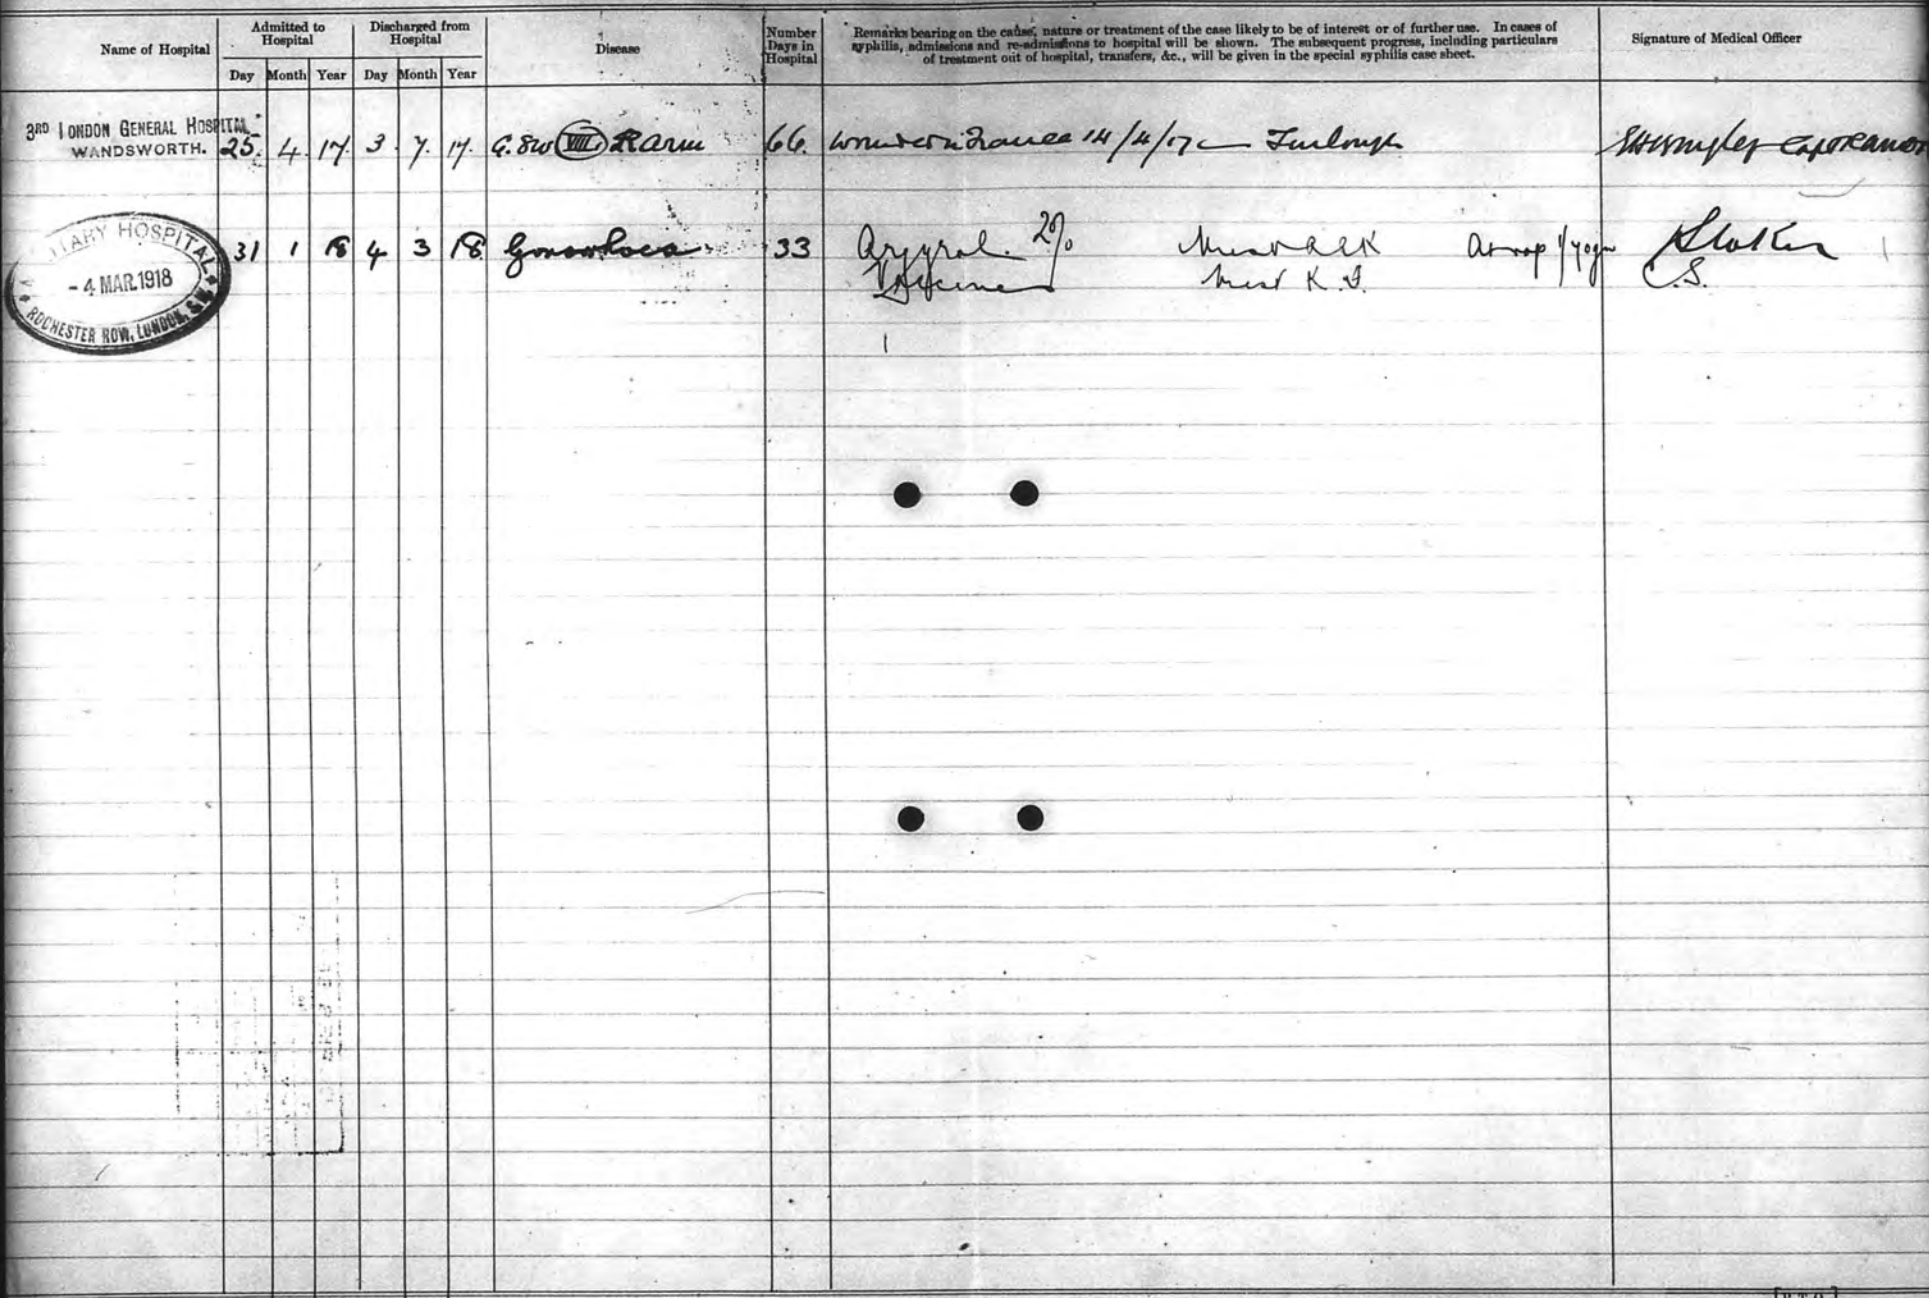 Name of Hospital
Admitted to Hospital
Day Month Year
Discharged from Hospital
Day Month Year
Disease
Number Days in Hospital
Remarks bearing on the cause, nature or treatment of the case likely to be of interest or of further use. In cases of
syphilis, admissions and re-admissions to hospital will be shown. The subsequent progress, including particulars
of treatment out of hospital, transfers, &c., will be given in the special syphilis case sheet.
Signature of Medical Officer
3RD LONDON GENERAL HOSPITAL
WANDSWORTH. 25. 4. 17. 3. 7. 17. G.S.W. (VIII) R arm 66. Wounded in France 14/4/17 Furlough Capt RAMC
ITARY HOSPITAL
- 4 MAR. 1918
ROCHESTER ROW, LONDON, S.W.
31 1 18 4 3 18 Gonorrhoea 33 Argyrol. 20% Mist Alk Stoker
Vaccines Mist K. I. C.S.
[P.T.O.]